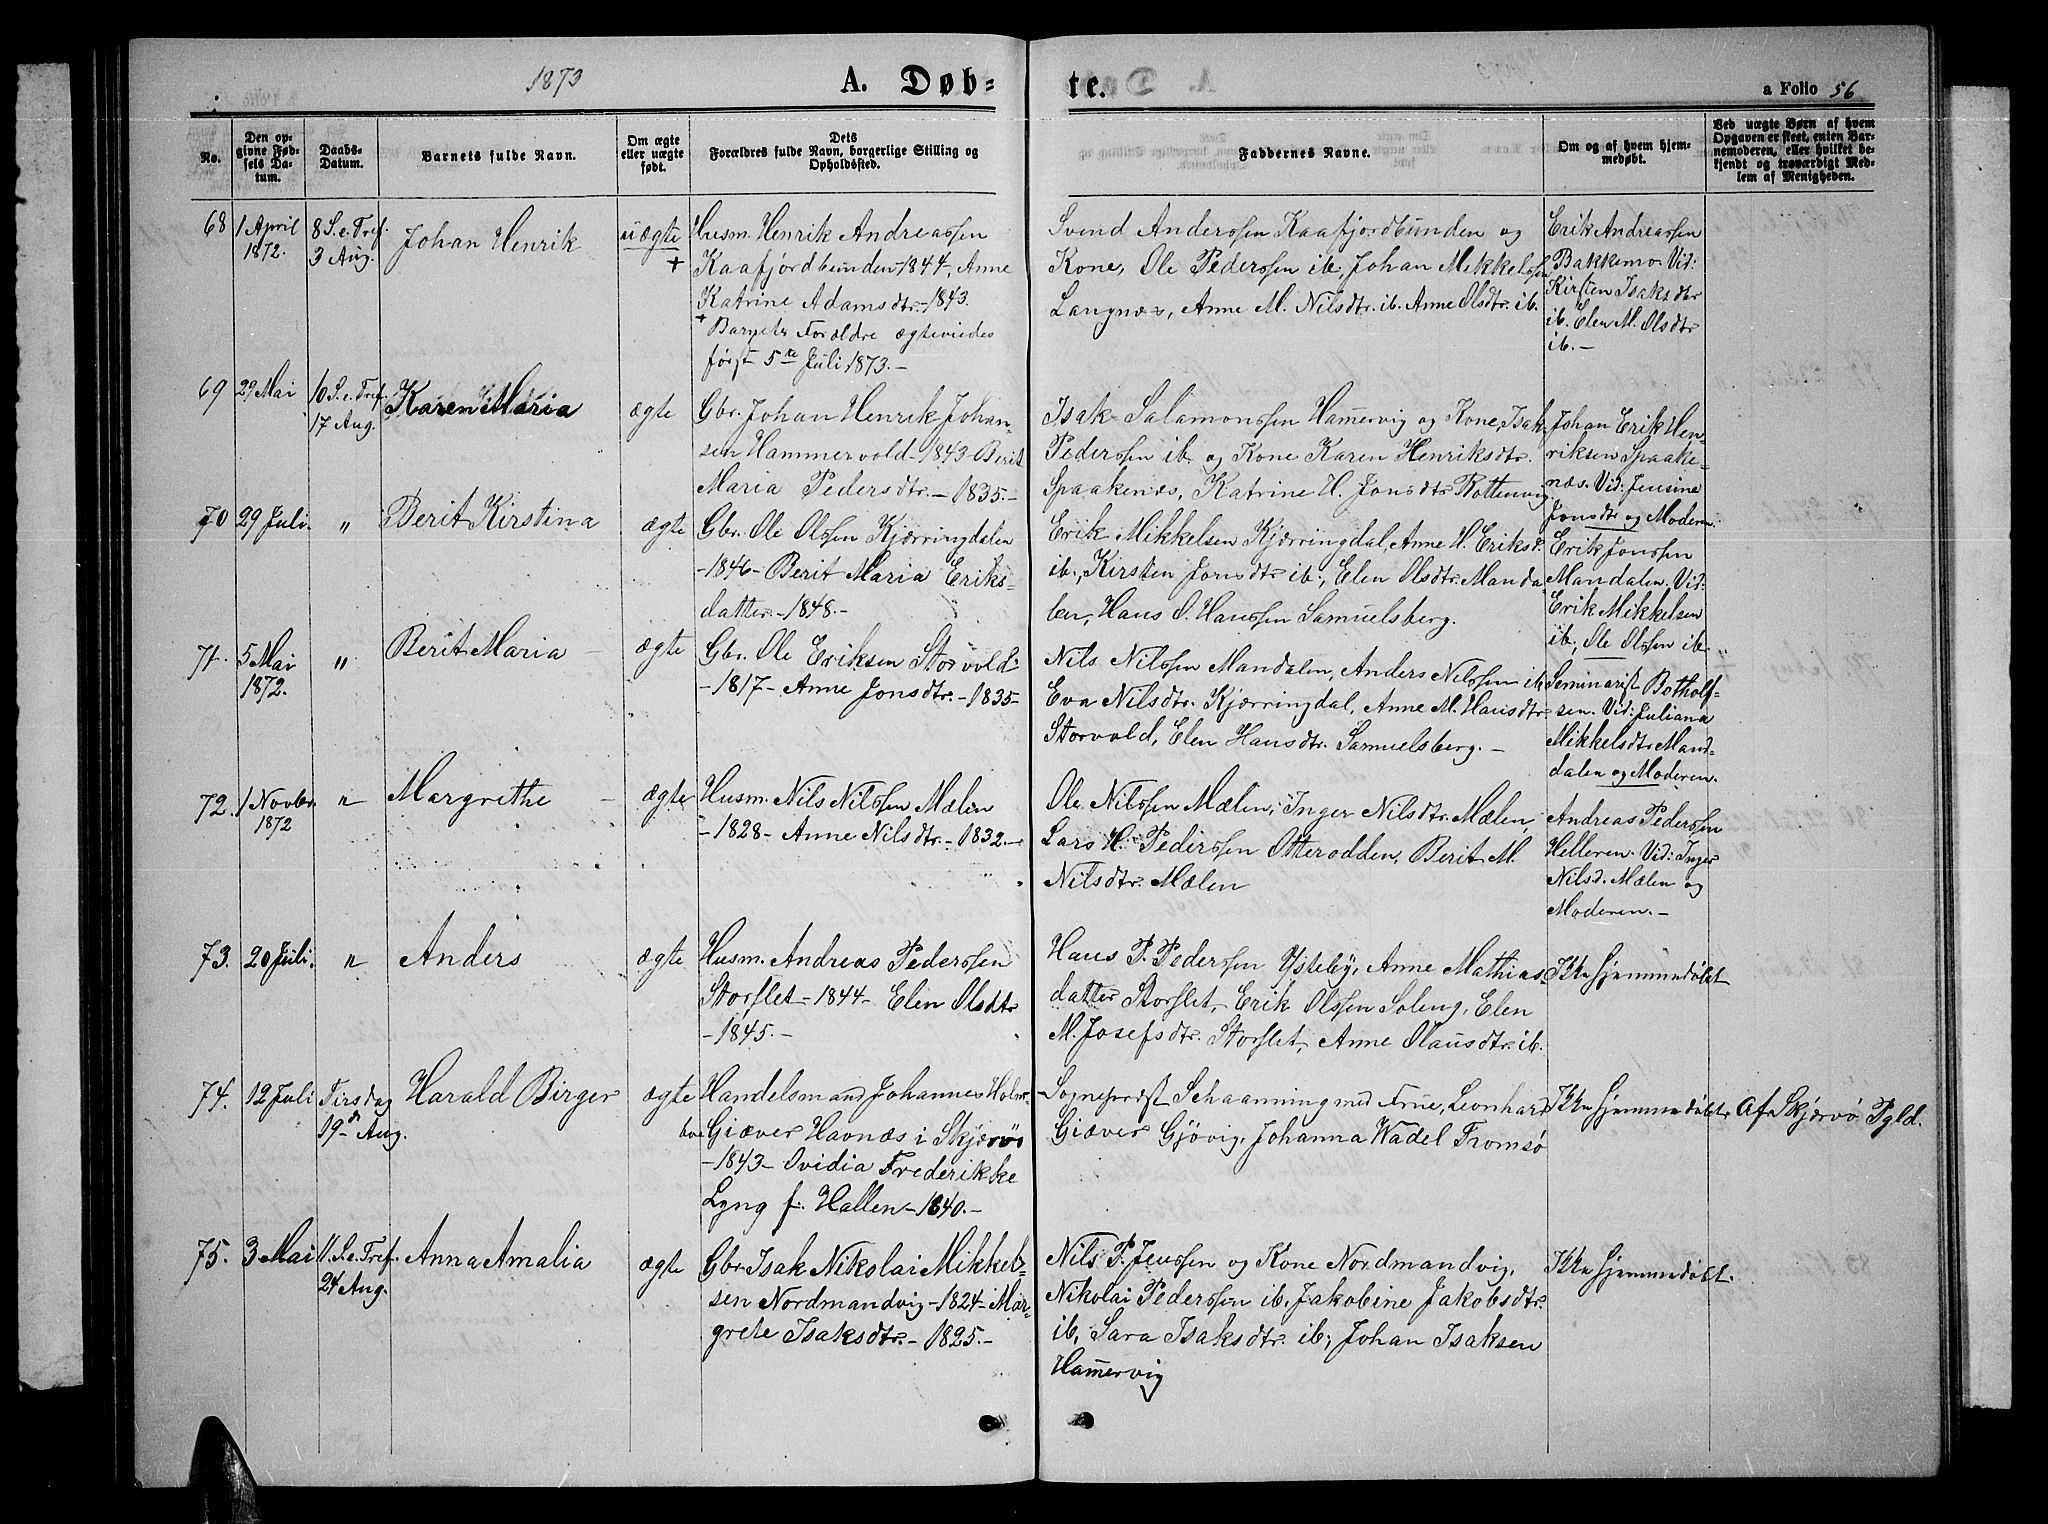 1873
A. Døb=
te.
a Folio 56
No.
Den op=
givne Fød=
sels Da=
tum.
Daabs=
Datum.
Barnets fulde Navn.
Om ægte
eller uægte
født.
Dets
Forældres fulde Navn, borgerlige Stilling og
Opholdssted.
Faddernes Navne.
Om og af hvem hjem=
medøbt.
Ved uægte Børn af hvem
Opgaven er skeet, enten Bar=
nemoderen, eller hvilket be=
kjendt og troværdigt Med=
lem af Menigheden.
68
1 April
1872.
8 S. e. Tref.
3 Aug.
Johan Henrik
uægte
+
Husm. Henrik Andreassen
Kaafjordbunden - 1844, Anne
Katrine Adamsdtr. - 1843.
+ Barnets Foreldre ægteviedes
først 5te Juli 1873. -
Svend Anderssen Kaafjordbunden og
Kone, Ole Pederssen ib., Johan Mikkelssen
Langnæs, Anne M. Nilsdtr. ib. Anne Olsdtr. ib.
Erik Andreassen
Bakkemo. Vid:
Kirsten Isaksdtr
ib. Elen M. Olsdtr
ib. -
69
29 Mai
10 S. e. Tref.
17 Aug.
Karen Maria
ægte
Gbr. Johan Henrik Johan=
sen Hammervold - 1843 - Berit
Maria Pedersdtr. - 1835. -
Isak Salamonssen Hamervig og Kone, Isak
Pederssen ib. og Kone Karen Henriksdtr.
Spaakenæs, Katrine H. Jonsdtr Rottenvig.
Johan Erik Hen=
riksen Spaake=
næs. Vid: Jensine
Jonsdtr og Moderen.
70
29 Juli.
"
Berit Kirstina
ægte
Gbr. Ole Olssen Kjærringdalen
- 1846 - Berit Maria Eriks=
datter. - 1848. -
Erik Mikkelsen Kjærringdal, Anne M. Eriksd.
ib., Kirsten Jonsdtr ib., Elen Olsdtr. Manda
len, Hans O. Hanssen Samuelsberg.
Erik Jonssen
Mandalen. Vid:
Erik Mikkelsen
ib., Ole Olssen ib.
71.
5 Mai
1872.
"
Berit Maria
ægte
Gbr. Ole Eriksen Storvold
- 1817 - Anne Jonsdtr. - 1835 -
Nils Nilssen Mandalen, Anders Nilssen ib
Eva Nilsdtr. Kjærringdal, Anne M. Hansdtr.
Storvold, Elen Hansdtr. Samuelsberg. -
Seminarist Botholf=
sen. Vid: Juliana
Mikkelsdtr Mand=
dalen og Moderen.
72.
1 Novbr.
1872
"
Margrethe
ægte
Husm. Nils Nilssen Mælen
- 1828 - Anne Nilsdtr. - 1832. -
Ole Nilssen Mælen, Inger Nilsdtr. Mælen,
Lars H. Pederssen Otterodden, Berit M.
Nilsdtr. Mælen
Andreas Pederssen
Helleren. Vid: Inger
Nilsd. Mælen og
Moderen. -
73.
20 Juli.
"
Anders
ægte
Husm. Andreas Pederssen
Storslet - 1844 - Elen Olsdtr
- 1845. -
Hans P. Pederssen Ysteby, Anne Mathias=
datter Storslet, Erik Olssen Soleng, Elen
M. Josefsdtr. Storslet, Anne Olausdtr. ib.
Ikke hjemmedøbt
74.
12 Juli
Tirsdag
19de Aug.
Harald Birger
ægte
Handelsmand Johannes Holm=
boe Giæver Havnæs i Skjærvø
- 1843 - Ovidia Frederikke
Lyng f. Hallen - 1840. -
Sogneprest Schaanning med Frue, Leonhard
Giæver Gjövig, Johanna Wadel Tromsø
Ikke hjemmedøbt.
Af Skjærvø Pgld.
75.
3 Mai
11 S. e. Tref.
24 Aug.
Anna Amalia
ægte
Gbr. Isak Nikolai Mikkel=
sen Nordmandvig - 1824 - Mar=
grete Isaksdtr. - 1825. -
Nils P. Jenssen og Kone Nordmandvig,
Nikolai Pederssen ib. Jakobine Jakobsdtr.
ib, Sara Isaksdtr. ib., Johan Isaksen
Hamervig
Ikke hjemmedøbt.